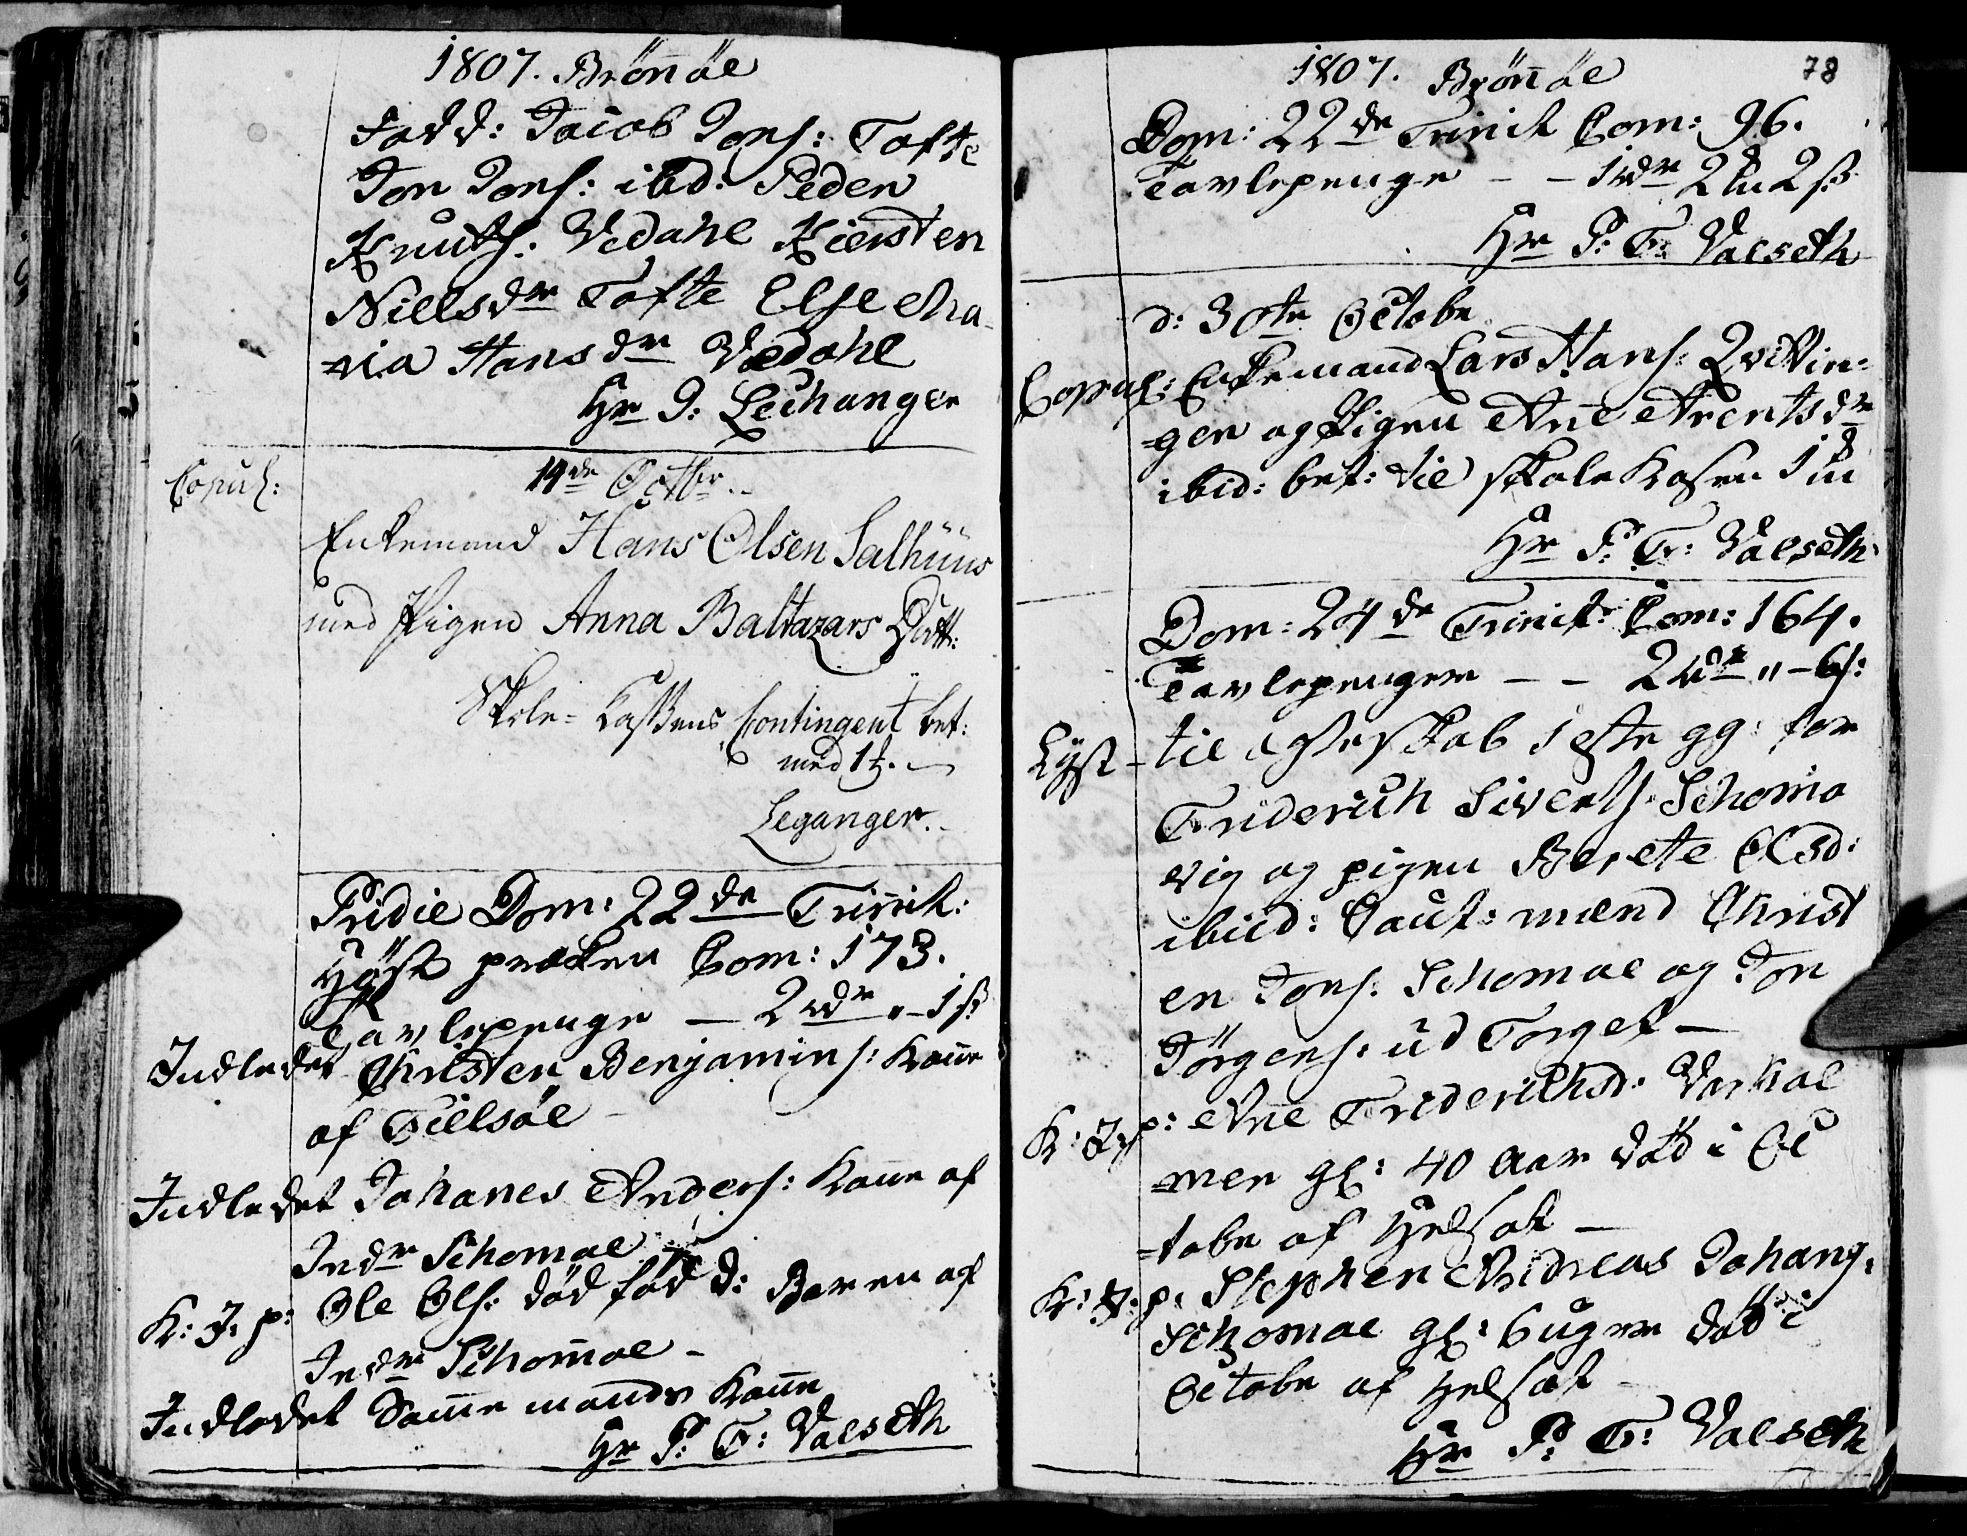 1807. Brönöe
Fadd: Jacob Jons: Tofte
Jon Jons: ibd: Peder
Knuts: Vedahl Kiersten
Nielsdr Tofte Else Ma-
ria Hans dr Vedahl
Hr J: Lechanger
Copul:
14de Octbr.
Enkemand Hans Olsen Salhuus
med Pigen Anna Baltazars Datt:
Skole-Kassens Contingent bet:
med 1
Leganger.
Pridie Dom: 22de Trinit:
Höst præken Com: 173.
Tavlepenge — 2 rdr " - 1 s
Indledet Christen Benjamins: Kone
af Tielsöe
Indledet Johanes Anders: Kone af
Indr Schomoe
K: J: p: Ole Ols: död föd d: Barn af
Indr Schomoe -
Indledet Samme mands Kone
Hr P: T: Valseth
1807. Brönöe
78
Dom: 22de Trinit Com: 96.
Tavlepenge - - 1 rdr 2 2 s
Hr P: T: Valseth
d: 30te Octobr
Copul: Enkemand Lars Hans: Qvittin-
gen og Pigen Ane Arentsdr
ibid: bet: til Skole Kasen 1
Hr P: T: Valseth
Dom: 24de Trinit: Com: 164.
Tavlepengen - - 2 rdr " - 6 s:
Lyst- til Egteskab 1 ste gg: for
Friderich Siverts: Schomo
vig og pigen Berete Olsd:
ibid: Caut: mænd Christ
en Jons: Schomoe og Jon
Jörgens: ud Torget —
K: J: p: Ane Friderichsd:
men gl: 40 Aar död i Oc
tobr af Helsot —
K: J: p: Stephen Andreas Johans:
Schomoe gl: 6 uger död i
Octobr af Helsot -
Hr P: T: Valseth